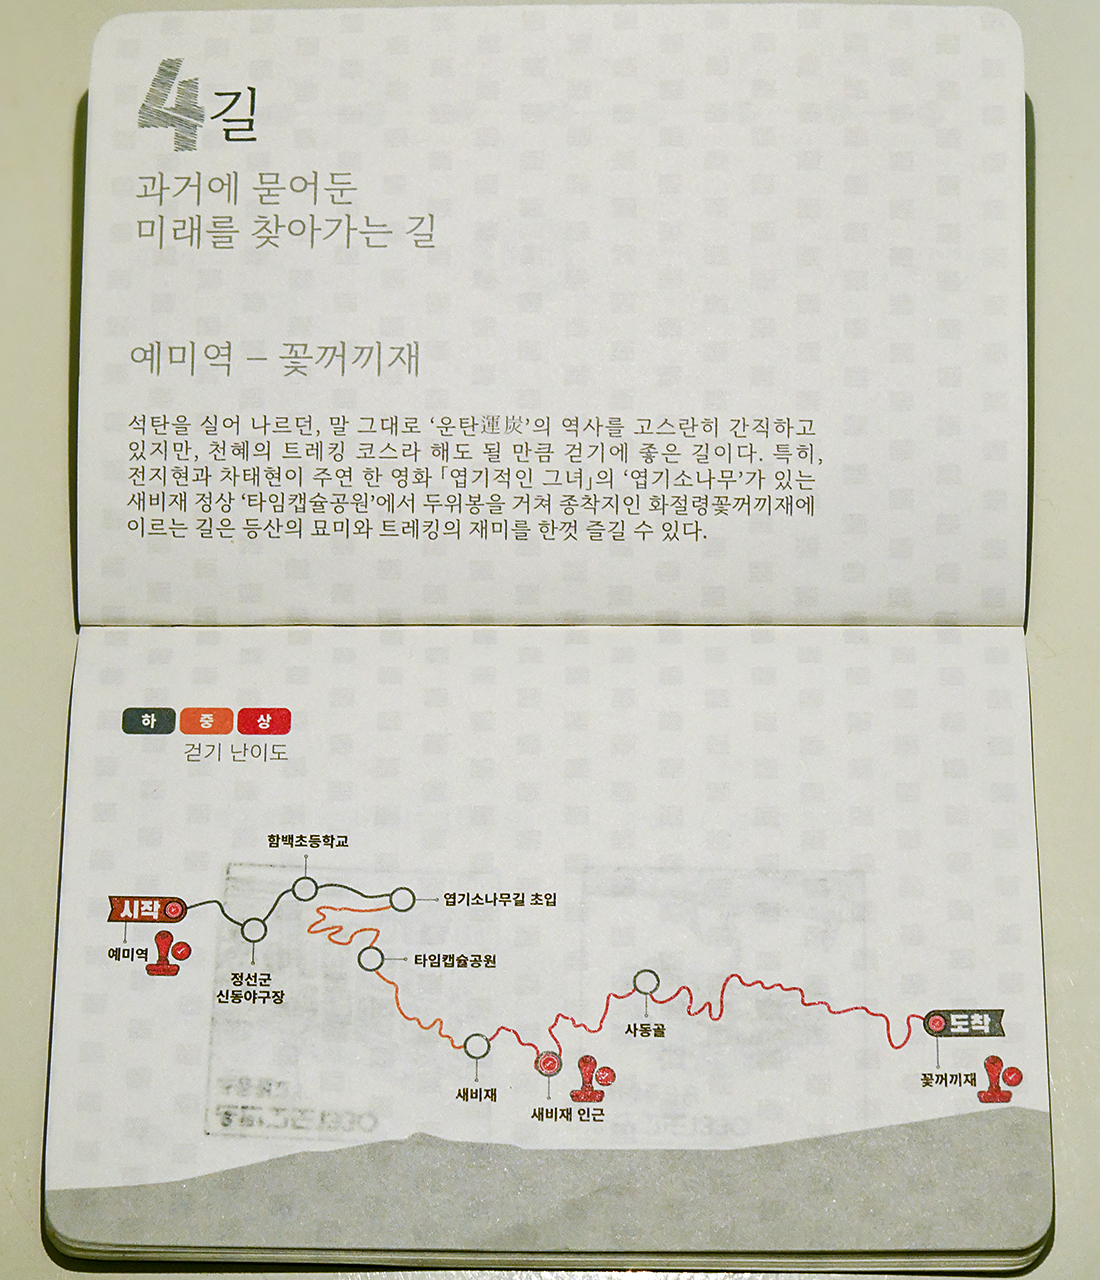 4길
과거에 묻어둔
미래를 찾아가는 길
예미역 – 꽃꺼끼재
석탄을 실어 나르던, 말 그대로 ‘운탄運炭’의 역사를 고스란히 간직하고
있지만, 천혜의 트레킹 코스라 해도 될 만큼 걷기에 좋은 길이다. 특히,
전지현과 차태현이 주연 한 영화 「엽기적인 그녀」의 ‘엽기소나무’가 있는
새비재 정상 ‘타임캡슐공원’에서 두위봉을 거쳐 종착지인 화절령꽃꺼끼재에
이르는 길은 등산의 묘미와 트레킹의 재미를 한껏 즐길 수 있다.
하 중 상
걷기 난이도
함백초등학교
엽기소나무길 초입
시작
예미역
정선군
신동야구장
타임캡슐공원
사동골
도착
꽃꺼끼재
새비재
새비재 인근